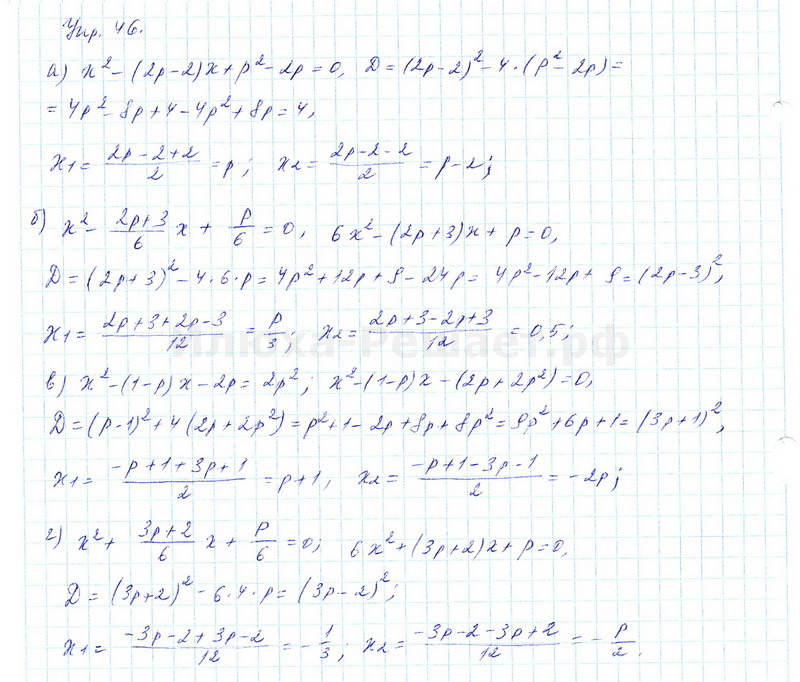 Упр. 46.
а) x² - (2p-2)x + p² - 2p = 0, D = (2p-2)² - 4·(p² - 2p) =
= 4p² - 8p + 4 - 4p² + 8p = 4,
x₁ = (2p-2+2)/2 = p; x₂ = (2p-2-2)/2 = p-2;
б) x² - (2p+3)/6 x + p/6 = 0, 6x² - (2p+3)x + p = 0,
D = (2p+3)² - 4·6·p = 4p² + 12p + 9 - 24p = 4p² - 12p + 9 = (2p-3)²,
x₁ = (2p+3+2p-3)/12 = p/3; x₂ = (2p+3-2p+3)/12 = 0,5;
в) x² - (1-p)x - 2p = 2p²; x² - (1-p)x - (2p+2p²) = 0,
D = (p-1)² + 4(2p+2p²) = p² + 1 - 2p + 8p + 8p² = 9p² + 6p + 1 = (3p+1)²,
x₁ = (-p+1+3p+1)/2 = p+1, x₂ = (-p+1-3p-1)/2 = -2p;
г) x² + (3p+2)/6 x + p/6 = 0; 6x² + (3p+2)x + p = 0,
D = (3p+2)² - 6·4·p = (3p-2)²;
x₁ = (-3p-2+3p-2)/12 = -1/3; x₂ = (-3p-2-3p+2)/12 = -p/2.